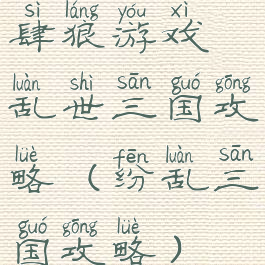 sì láng yóu xì
肆狼游戏
luàn shì sān guó gōng
乱世三国攻
lüè fēn luàn sān
略（纷乱三
guó gōng lüè
国攻略）